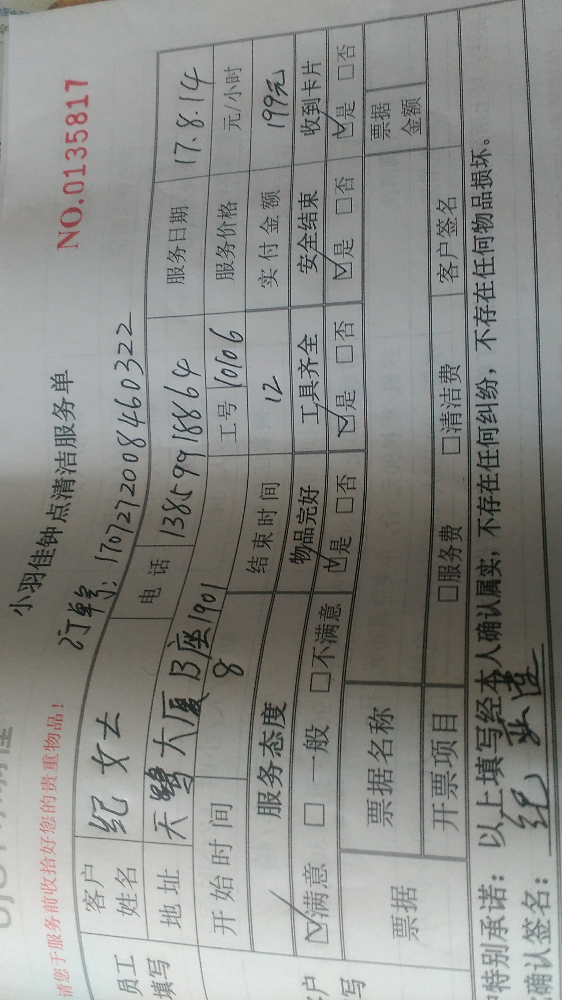 小羽佳钟点清洁服务单
NO.0135817
请您于服务前收拾好您的贵重物品！
订单号：1707272008460322
员工填写
客户姓名 纪女士 电话 13859918864 服务日期 17.8.14
地址 天鹭大厦B座1901 工号 10106 服务价格 元/小时
开始时间 8 结束时间 12 实付金额 199元
服务态度 物品完好 工具齐全 安全结束 收到卡片
☑满意 □一般 □不满意 ☑是 □否 ☑是 □否 ☑是 □否 ☑是 □否
票据 票据名称 票据金额
开票项目 □服务费 □清洁费 客户签名
特别承诺：以上填写经本人确认属实，不存在任何纠纷，不存在任何物品损坏。
确认签名：纪